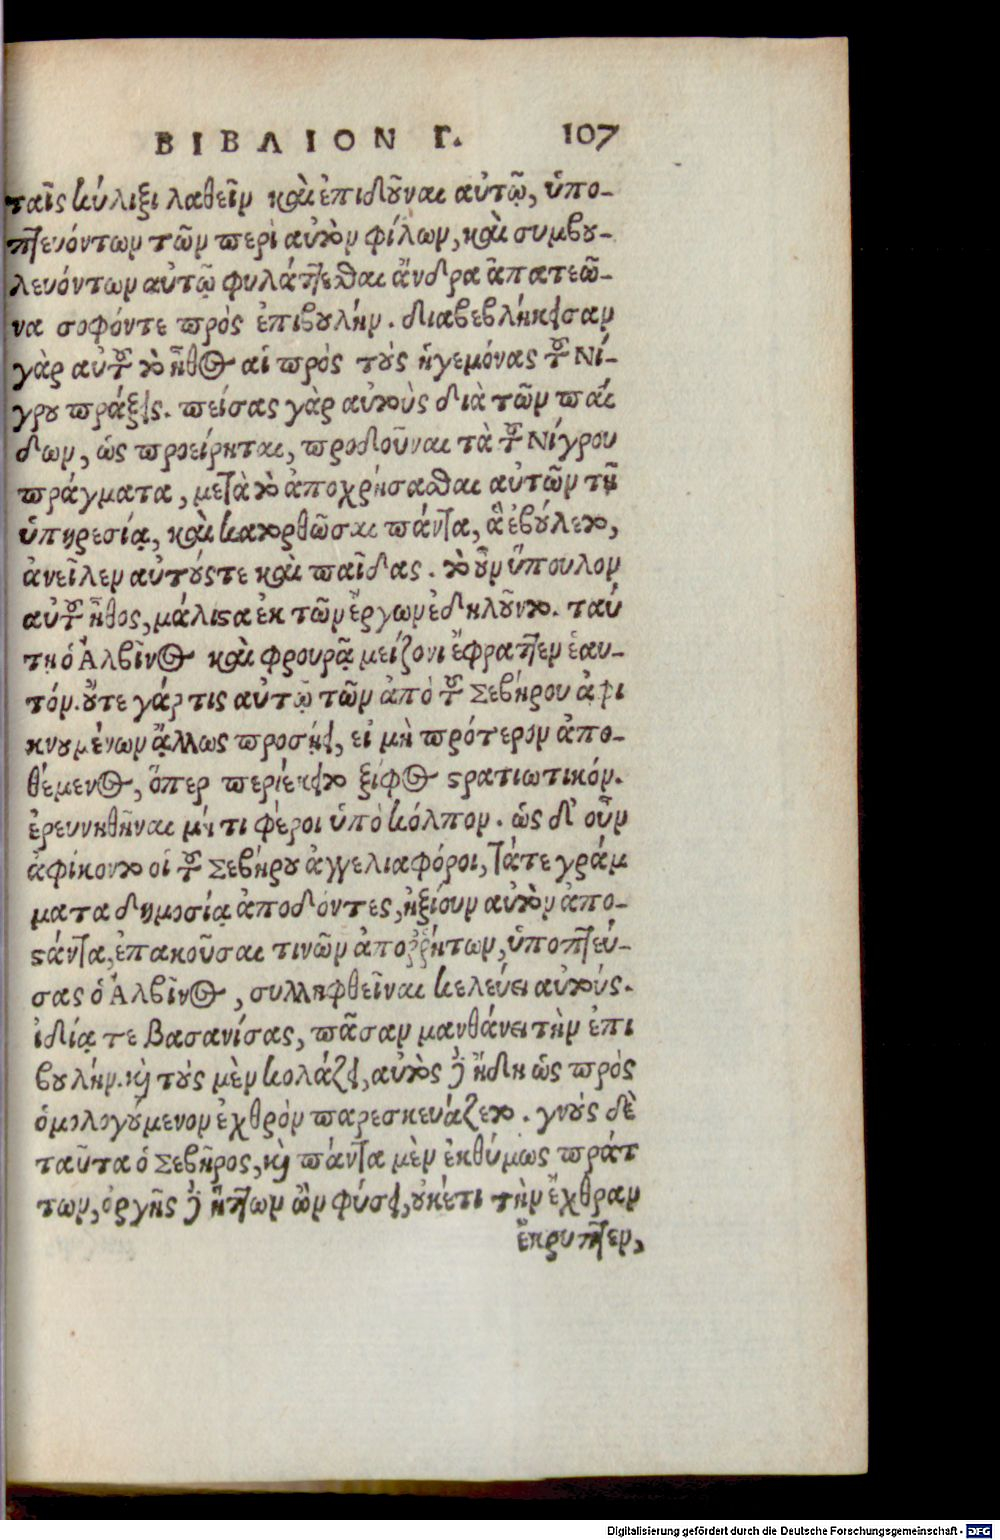 ΒΙΒΛΙΟΝ Γ. 107
ταῖς κύλιξι λαθεῖν καὶ ἐπιδοῦναι αὐτῷ, ὑπο-
πτευόντων τῶν περὶ αὐτὸν φίλων, καὶ συμβου-
λευόντων αὐτῷ φυλάττεσθαι ἄνδρα ἀπατεῶ-
να σοφόντε πρὸς ἐπιβουλήν. διαβεβλήκεισαν
γὰρ αὐτοῦ τὸ ἦθος αἱ πρὸς τοὺς ἡγεμόνας τοῦ Νί-
γρου πράξεις. πείσας γὰρ αὐτοὺς διὰ τῶν παί
δων, ὡς προείρηται, προδοῦναι τὰ τοῦ Νίγρου
πράγματα, μετὰ τὸ ἀποχρήσασθαι αὐτῶν τῇ
ὑπηρεσίᾳ, καὶ κατορθῶσαι πάντα, ἃ ἐβούλετο,
ἀνεῖλεν αὐτούστε καὶ παῖδας. τὸ οὖν ὕπουλον
αὐτοῦ ἦθος, μάλιστα ἐκ τῶν ἔργων ἐδηλοῦντο. ταύ
τῃ ὁ Ἀλβῖνος καὶ φρουρᾷ μείζονι ἔφραττεν ἑαυ-
τόν. οὔτε γάρ τις αὐτῷ τῶν ἀπὸ τοῦ Σεβήρου ἀφι
κνουμένων ἄλλως προσῄει, εἰ μὴ πρότερον ἀπο-
θέμενος, ὅπερ περιέκειτο ξίφος στρατιωτικόν.
ἐρευνηθῆναι μή τι φέροι ὑπὸ κόλπον. ὡς δ' οὖν
ἀφίκοντο οἱ τοῦ Σεβήρου ἀγγελιαφόροι, τάτε γράμ
ματα δημοσίᾳ ἀποδόντες, ἠξίουν αὐτὸν ἀπο-
στάντα, ἐπακοῦσαι τινῶν ἀποῤῥήτων, ὑποπτεύ-
σας ὁ Ἀλβῖνος, συλληφθεῖναι κελεύει αὐτούς.
ἰδίᾳ τε βασανίσας, πᾶσαν μανθάνει τὴν ἐπι
βουλήν. καὶ τοὺς μὲν κολάζει, αὐτὸς δὲ ἤδη ὡς πρὸς
ὁμολογούμενον ἐχθρὸν παρεσκευάζετο. γνοὺς δὲ
ταῦτα ὁ Σεβῆρος, καὶ πάντα μὲν ἐκθύμως πράτ
των, ὀργῆς δὲ ἥττων ὢν φύσει, οὐκέτι τὴν ἔχθραν
ἔκρυπτεν,
Digitalisierung gefördert durch die Deutsche Forschungsgemeinschaft - DFG